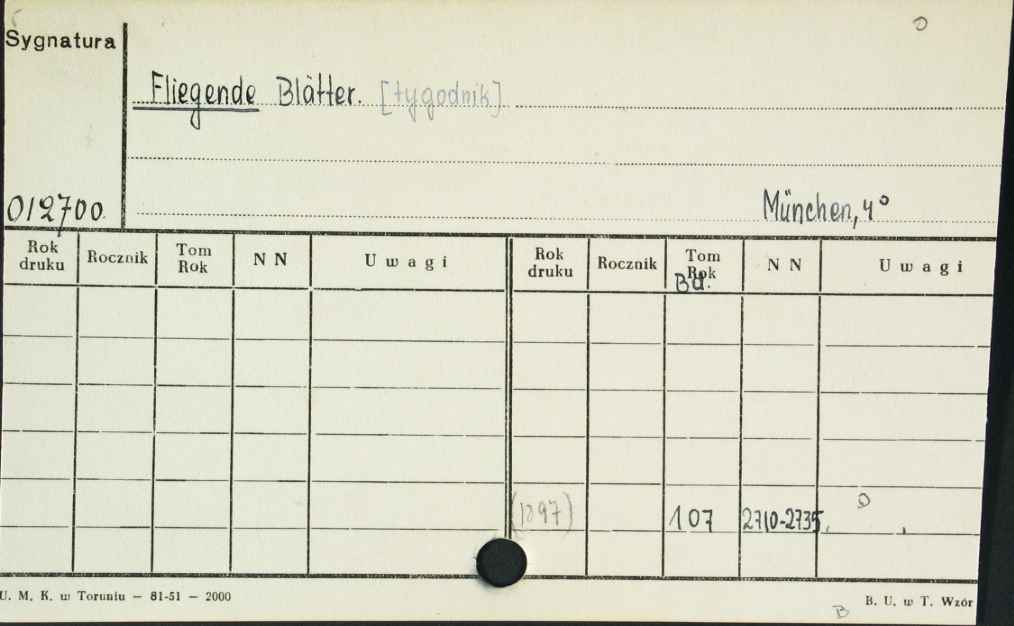 Sygnatura
Fliegende Blätter. [tygodnik]
012700
München, 4°
Rok druku Rocznik Tom Rok N N Uwagi Rok druku Rocznik Tom Rok N N Uwagi
Bd.
(1897) 107 2710-2735.
U. M. K. w Toruniu — 81-51 — 2000
B. U. w T. Wzór
B